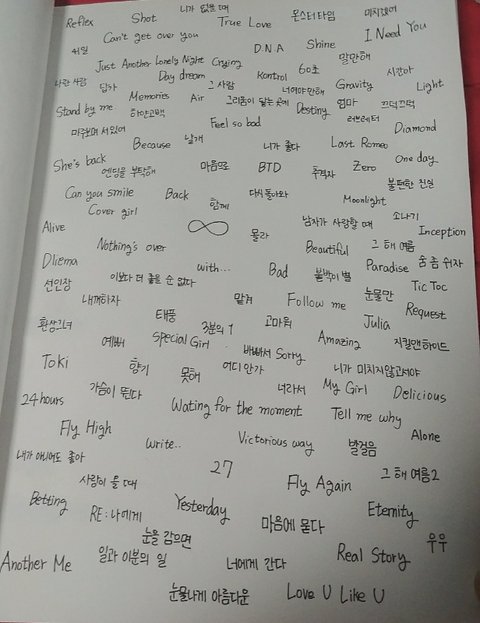 니가 없을 때
Reflex Shot True Love 몬스터타임 미치겠어
Can't get over you I Need You
41일 D.N.A Shine 말만해
Just Another Lonely Night Crying
나란 사람 답가 Day dream 그 사람 Kontrol 60초 Gravity 시간아
Memories Air 너여야만 해 Light
Stand by me 하얀고백 그리움이 닿는 곳에 Destiny 엄마 끄덕끄덕
Feel so bad 러브레터 Diamond
마주보며 서있어 Because 날개 니가 좋다 Last Romeo
She's back 엔딩을 부탁해 마음으로 BTD 추격자 Zero One day
불편한 진실
Can you smile Back 함께 다시 돌아와 Moonlight
Cover girl
Alive ∞ 몰라 남자가 사랑할 때 소나기 Inception
Nothing's over Beautiful 그 해 여름
Dilema with... Bad 붙박이 별 Paradise 숨 좀 쉬자
선인장 이보다 더 좋을 순 없다 Tic Toc
내꺼하자 맡겨 Follow me 눈물만 Request
환상그녀 태풍 3분의 1 고마워 Julia
예뻐 Special Girl 바빠서 Sorry Amazing 지킬앤하이드
Toki 향기 못해 어디 안가 니가 미치지않고서야
24hours 가슴이 뛴다 너라서 My Girl Delicious
Wating for the moment Tell me why
Fly High Write.. Victorious way 발걸음 Alone
내가 아니어도 좋아 27 그 해 여름2
사랑이 올 때 Fly Again
Betting RE:나에게 Yesterday 마음에 묻다 Eternity
눈을 감으면 우우
Another Me 일과 이분의 일 너에게 간다 Real Story
눈물나게 아름다운 Love U Like U